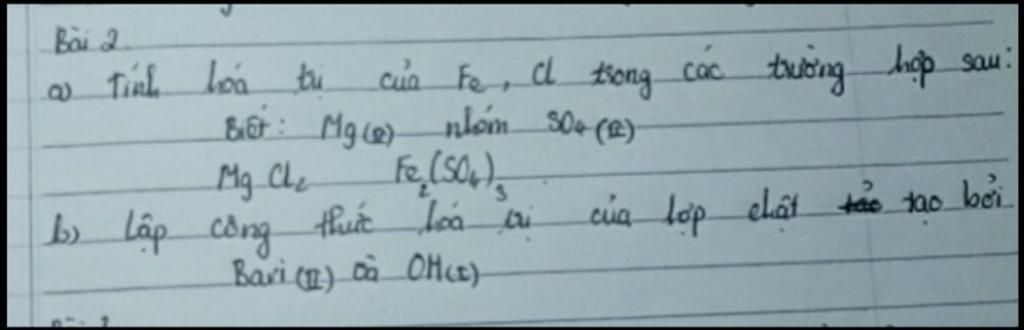 Bài 2
a) Tính hoá trị của Fe, Cl trong các trường hợp sau:
Biết: Mg(II) nhóm SO4 (II)
MgCl2 Fe2(SO4)3
b) Lập công thức hoá trị của hợp chất tạo bởi
Bari (II) và OH(I)